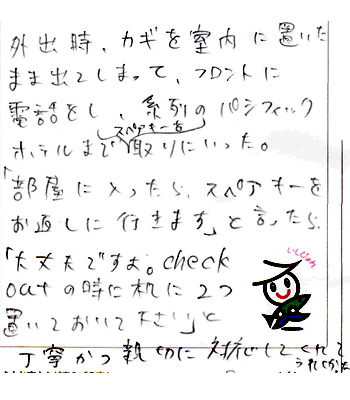 外出時、カギを室内に置いた
まま出てしまって、フロントに
電話をし、系列のパシフィック
ホテルまでスペアキーを取りにいった。
「部屋に入ったら、スペアキーを
お返しに行きます」と言ったら、
「大丈夫ですよ。check
outの時に机に2つ
置いておいて下さい」と
丁寧かつ親切に対応してくれて
うれしかった